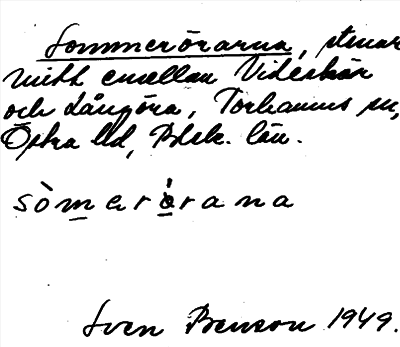 Sommerörarna, stenar
mitt emellan Videskär
och Långöra, Torhamns sn,
Östra hd, Blek. län.
sòmerǫ̀rana
Sven Benson 1949.